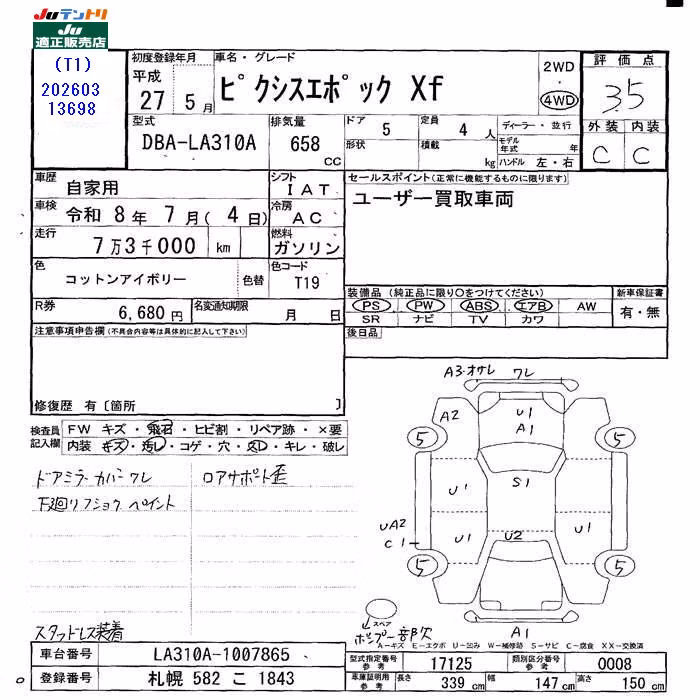 Juテントリ
Ju
適正販売店
(T1)
202603
13698
初度登録年月
平成
27 5月
車名・グレード
ピクシスエポック Xf
2WD
・
4WD
評価点
3.5
外装 内装
C C
型式
DBA-LA310A
排気量
658 CC
ドア 5
定員 4 人
ディーラー・並行
形状
積載 kg
モデル年式 年
ハンドル 左・右
車歴 自家用
シフト IAT
セールスポイント(正常に機能するものに限ります)
ユーザー買取車両
車検 令和 8年 7月( 4日)
冷房 AC
走行 7万3千000 km
燃料 ガソリン
色 コットンアイボリー 色替
色コード T19
R券 6,680円
名変通知期限 月 日
装備品(純正品に限り○をつけてください)
PS PW ABS エアB AW
SR ナビ TV カワ
新車保証書
有・無
後日品
注意事項申告欄(不具合内容等は具体的に記入して下さい)
修復歴 有〔箇所 〕
検査員記入欄
FW キズ・飛石・ヒビ割・リペア跡・×要
内装 キズ・汚レ・コゲ・穴・スレ・キレ・破レ
ドアミラーカバーワレ
ロアサポート歪
下廻リフショク ペイント
スタッドレス装着
A3・オサレ ワレ
A2
U1
A1
5
5
S1
U1
U1
UA2
C1
U1
U2
5
5
スペア
A1
A-キズ E-エクボ U-凹ミ W-補修跡 S-サビ C-腐食 XX-交換済
車台番号 LA310A-1007865
登録番号 札幌 582 こ 1843
型式指定番号 参考 17125
類別区分番号 参考 0008
車庫証明用 参考
長さ 339 cm
幅 147 cm
高さ 150 cm